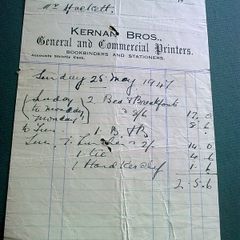 Mr Hackett.
KERNAN BROS.,
General and Commercial Printers.
BOOKBINDERS AND STATIONERS.
ACCOUNTS STRICTLY CASH.
Sunday 25 May 1947
Sunday 2 Bed & Breakfasts
to Monday
Monday 1 B & B
to Tues
Tues. 7 @ 2/- 14.0
1 tie 4.6
1 Handkerchief 1.6
2.5.6